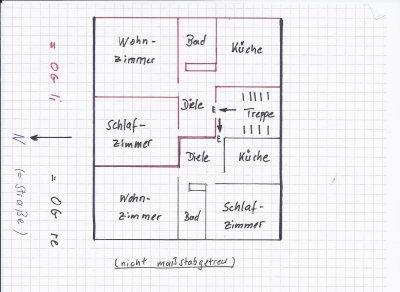 Wohn-
zimmer
Bad
Küche
Diele
E
Treppe
Schlaf-
zimmer
E
Diele
Küche
Wohn-
zimmer
Bad
Schlaf-
zimmer
(nicht maßstabgetreu)
= OG li
= OG re
N
(= Straße)